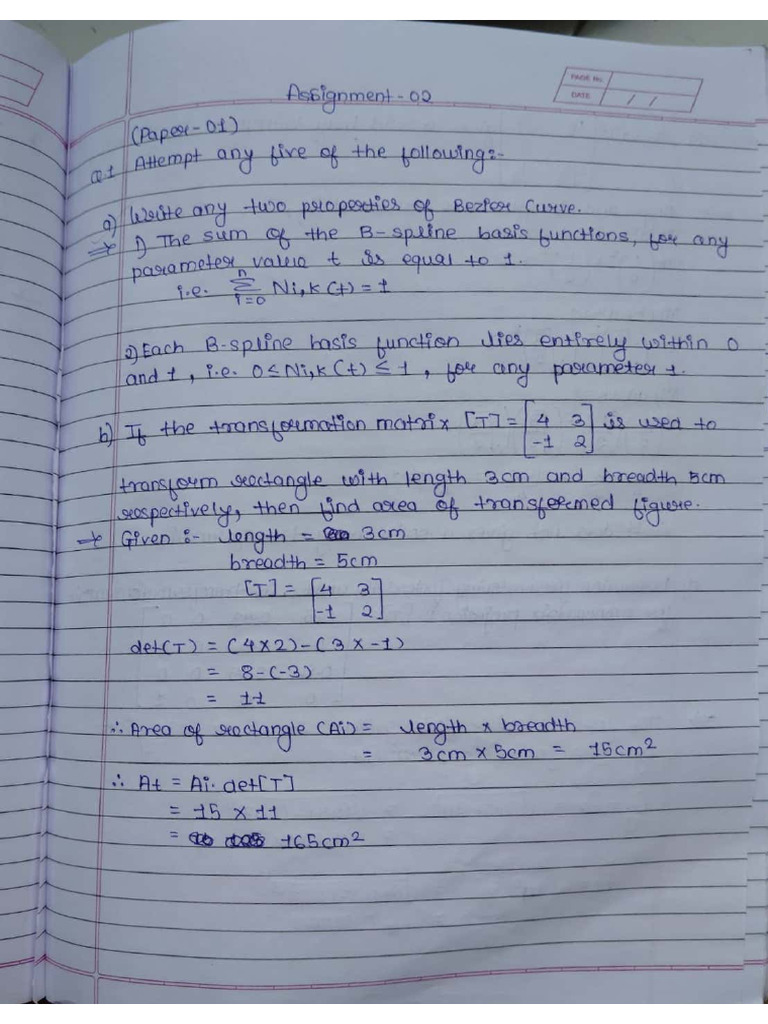 Assignment-02
PAGE No.
DATE / /
(Paper-01)
Q1 Attempt any five of the following:-
a) Write any two properties of Bezier Curve.
→ 1) The sum of the B-spline basis functions, for any
parameter value t is equal to 1.
i.e. n∑i=0 Ni,k (t) = 1
2) Each B-spline basis function lies entirely within 0
and 1, i.e. 0 ≤ Ni,k (t) ≤ 1, for any parameter t.
b) If the transformation matrix [T] = [4 3] is used to
[-1 2]
transform rectangle with length 3cm and breadth 5cm
respectively, then find area of transformed figure.
→ Given :- length = 3cm
breadth = 5cm
[T] = [4 3]
[-1 2]
det(T) = (4×2)-(3×-1)
= 8-(-3)
= 11
∴ Area of rectangle (Ai) = length × breadth
= 3cm × 5cm = 15cm²
∴ At = Ai. det[T]
= 15 × 11
= 165cm²